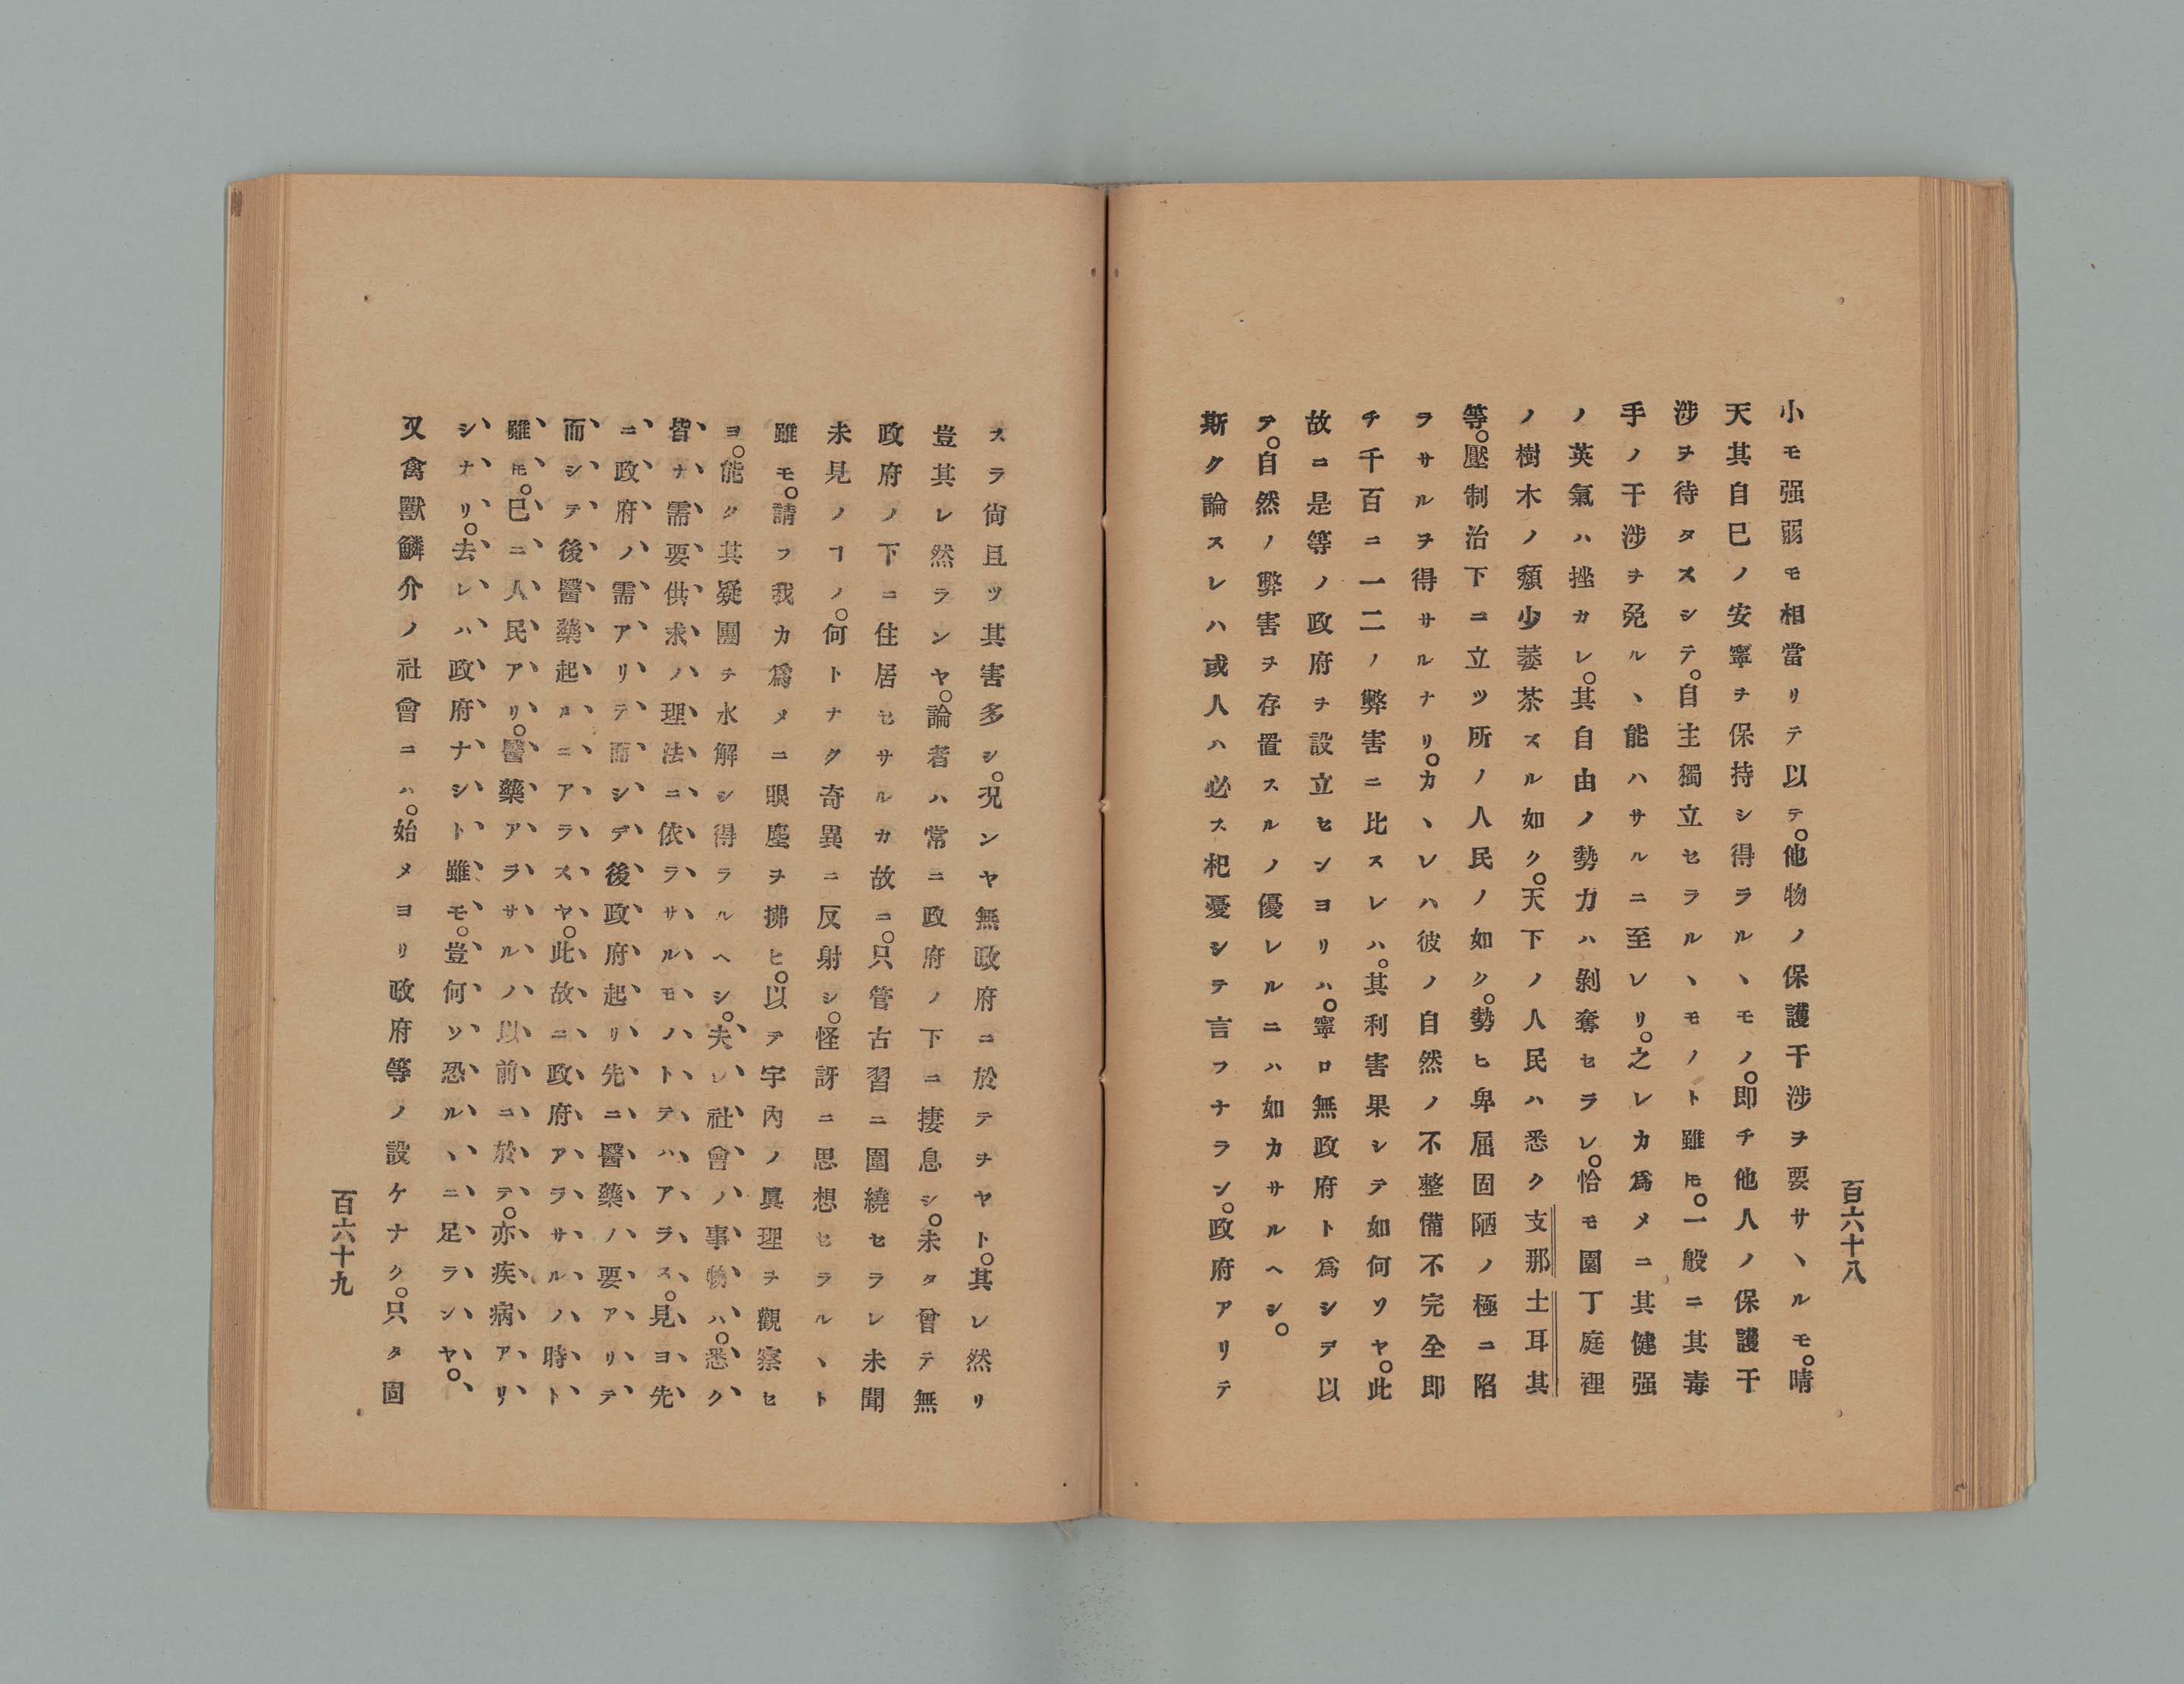 小モ强弱モ相當リテ以テ。他物ノ保護干涉ヲ要サヽルモ。晴
天其自巳ノ安寧ヲ保持シ得ラルヽモノ。即チ他人ノ保護干
涉ヲ待タスシテ。自主獨立セラルヽモノト雖𪜈。一般ニ其毒
手ノ干涉ヲ免ルヽ能ハサルニ至レリ。之レカ爲メニ其健强
ノ英氣ハ挫カレ。其自由ノ勢力ハ剝奪セラレ。恰モ園丁庭裡
ノ樹木ノ頽少萎茶スル如ク。天下ノ人民ハ悉ク支那土耳其
等。壓制治下ニ立ツ所ノ人民ノ如ク。勢ヒ卑屈固陋ノ極ニ陷
ラサルヲ得サルナリ。カヽレハ彼ノ自然ノ不整備不完全即
チ千百ニ一二ノ弊害ニ比スレハ。其利害果シテ如何ソヤ。此
故ニ是等ノ政府ヲ設立センヨリハ。寧ロ無政府ト爲シテ以
テ。自然ノ弊害ヲ存置スルノ優レルニハ如カサルヘシ。
斯ク論スレハ或人ハ必ス杞憂シテ言フナラン。政府アリテ
百六十八
スラ尙且ツ其害多シ。况ンヤ無政府ニ於テヲヤト。其レ然リ
豈其レ然ランヤ。論者ハ常ニ政府ノ下ニ捿息シ。未タ曾テ無
政府ノ下ニ住居セサルカ故ニ。只管古習ニ圍繞セラレ未聞
未見ノヿノ。何トナク奇異ニ反射シ。怪訝ニ思想セラルヽト
雖モ。請フ我カ爲メニ眼塵ヲ拂ヒ。以テ宇內ノ眞理ヲ觀察セ
ヨ。能ク其疑團ヲ氷解シ得ラルヘシ。夫レ社會ノ事物ハ。悉ク
皆ナ需要供求ノ理法ニ依ラサルモノトテハアラス。見ヨ先
ニ政府ノ需アリテ而シテ後政府起リ先ニ醫藥ノ要アリテ
而シテ後醫藥起ルニアラスヤ。此故ニ政府アラサルノ時ト
雖𪜈。巳ニ人民アリ。醫藥アラサルノ以前ニ於テ。亦疾病アリ
シナリ。去レハ政府ナシト雖モ。豈何ソ恐ルヽニ足ランヤ。
又禽獸鱗介ノ社會ニハ。始メヨリ政府等ノ設ケナク。只タ固
百六十九